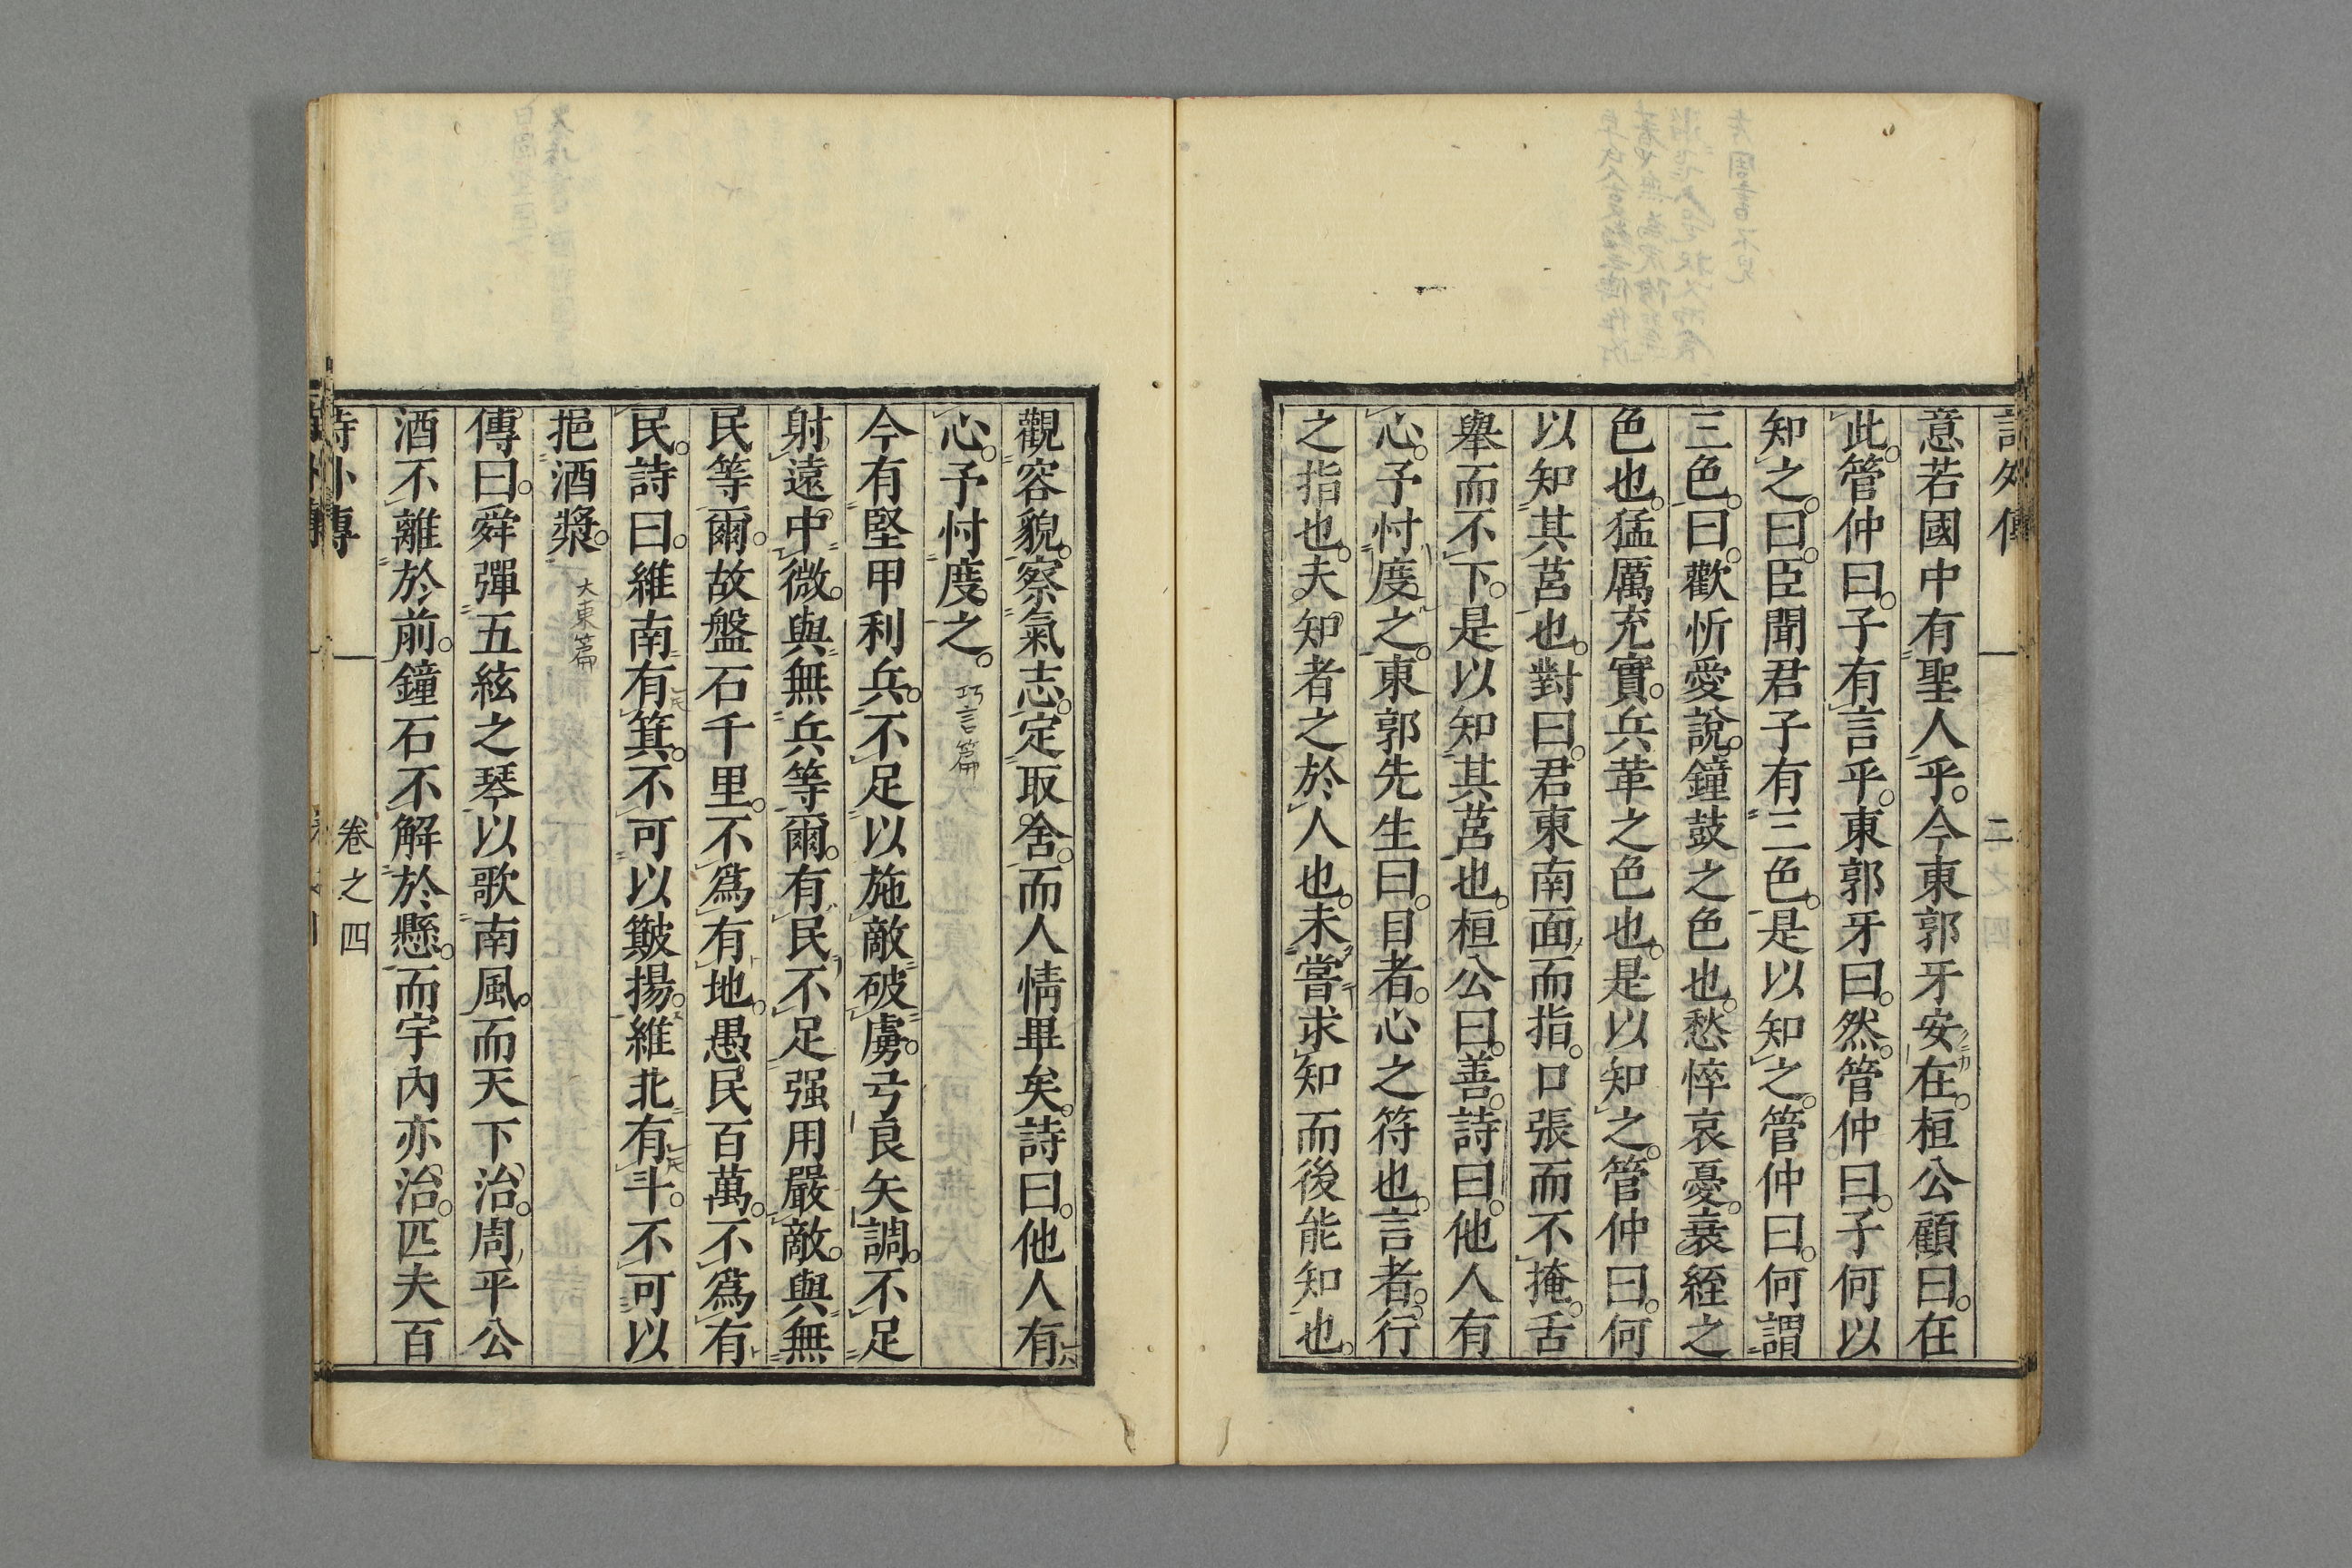 意若國中有聖人乎。今東郭牙安在。桓公顧曰。在
此。管仲曰。子有言乎。東郭牙曰。然。管仲曰。子何以
知之。曰。臣聞君子有三色。是以知之。管仲曰。何謂
三色。曰。歡忻愛說。鐘鼓之色也。愁悴哀憂。衰絰之
色也。猛厲充實。兵革之色也。是以知之。管仲曰。何
以知其莒也。對曰。君東南面而指。口張而不掩。舌
舉而不下。是以知其莒也。桓公曰。善。詩曰。他人有
心。予忖度之。東郭先生曰。目者。心之符也。言者。行
之指也。夫知者之於人也。未嘗求知而後能知也。
觀容貌。察氣志。定取舍。而人情畢矣。詩曰。他人有
心。予忖度之。巧言篇
今有堅甲利兵。不足以施敵破虜。弓良矢調。不足
射遠中微。與無兵等爾。有民不足强用嚴敵。與無
民等爾。故盤石千里。不爲有地。愚民百萬。不爲有
民。詩曰。維南有箕。不可以簸揚。維北有斗。不可以
挹酒漿。大東篇
傳曰。舜彈五絃之琴。以歌南風。而天下治。周平公
酒不離於前。鐘石不解於懸。而宇內亦治。匹夫百
卷之四